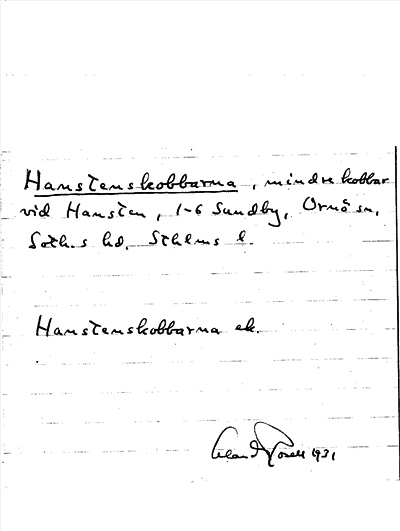 Hanstenskobbarna, mindre kobbar
vid Hansten, 1-6 Sundby, Ornö sn,
Soth.s hd, Sthlms l.
Hanstenskobbarna ek.
1931